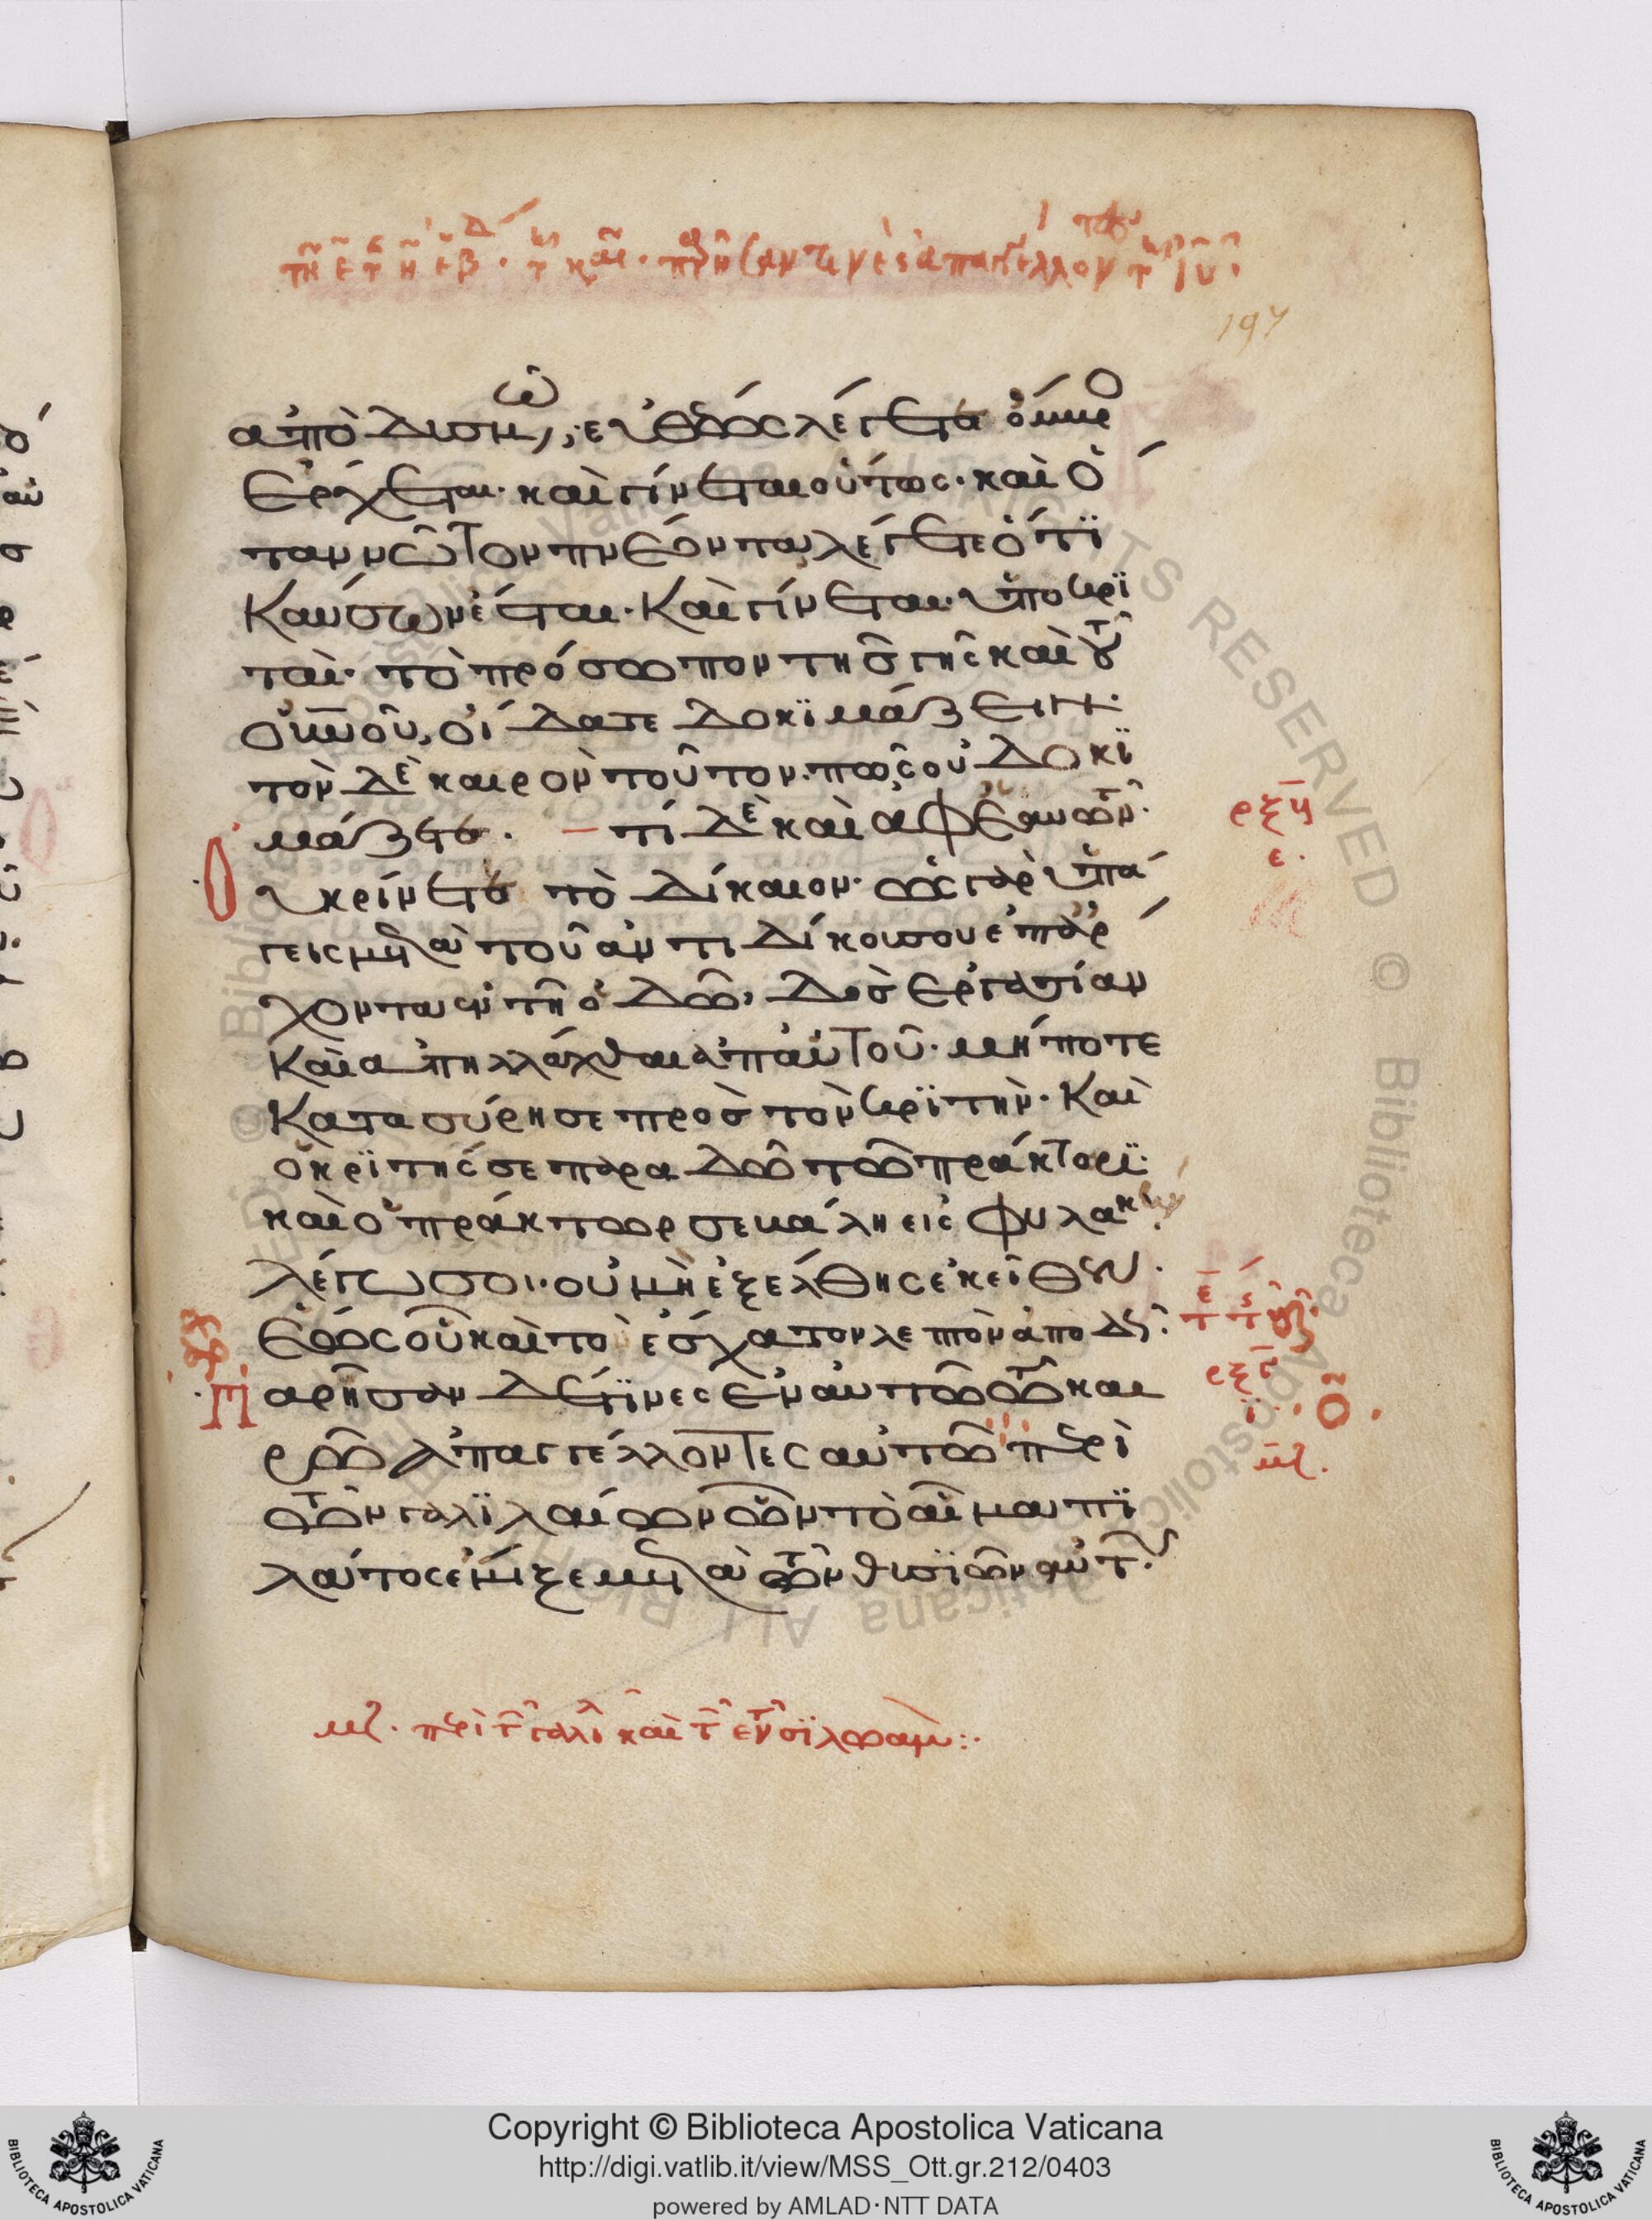 197
ἀπὸ δυσμῶ,, εὐθέως λέγετε ὄμβρο
ἔρχεται· καὶ γίνεται οὕτως· καὶ ὅ
ταν νῶτον πνέοντα λέγετε ὅτϊ
Καύσων ἔσται· Καὶ γίνεται· ὑποκρϊ
ταὶ· τὸ πρόσωπον τῆς γῆς καὶ τοῦ
οὐνοῦ, οἴδατε δοκϊμάζειν·
τὸν δὲ καιρὸν τοῦτον· πῶς οὐ δοκϊ
μάζετε. τί δὲ καὶ ἀφ ἑαυτῶν·
οὐ κρίνετε τὸ δίκαιον· ὡς γὰρ ὑπά
γεις μετὰ τοῦ ἀντιδίκου σου ἐπ ἄρ
χοντα ἐν τῆ ὁδῶ, δὸς ἐργασίαν
Καὶ ἀπηλλάχθαι ἀπ αὐτοῦ· μήποτε
Κατασύρη σε πρὸς τὸν κρϊτὴν· Καὶ
ὁ κρϊτής σε παραδῶ τῶ πράκτορϊ·
καὶ ὁ πράκτωρ σε βάλη εἰς φυλακὴν
λέγω σοι· οὐ μὴ ἐξέλθης ἐκεῖθεν·
ἕως οὗ καὶ τὸ ἔσχατον λεπτὸν ἀποδῶς·
Παρῆσαν δέ τϊνες ἐν αὐτῶ τῶ και
ρῶ ἀπαγγέλλοντες αὐτῶ περὶ
τῶν γαλϊλαίων ὧν τὸ αἷμα πϊ
λάτος ἔμιξε μετὰ τῶν θυσϊῶν αὐτῶν·
ρξη
ε·
ρξθ
ϊ·
μζ·
μζ· περὶ τῶν γαλι καὶ τῶν ἐν τῶ σϊλωάμ:·
Copyright © Biblioteca Apostolica Vaticana
http://digi.vatlib.it/view/MSS_Ott.gr.212/0403
powered by AMLAD·NTT DATA
BIBLIOTECA APOSTOLICA VATICANA
BIBLIOTECA APOSTOLICA VATICANA